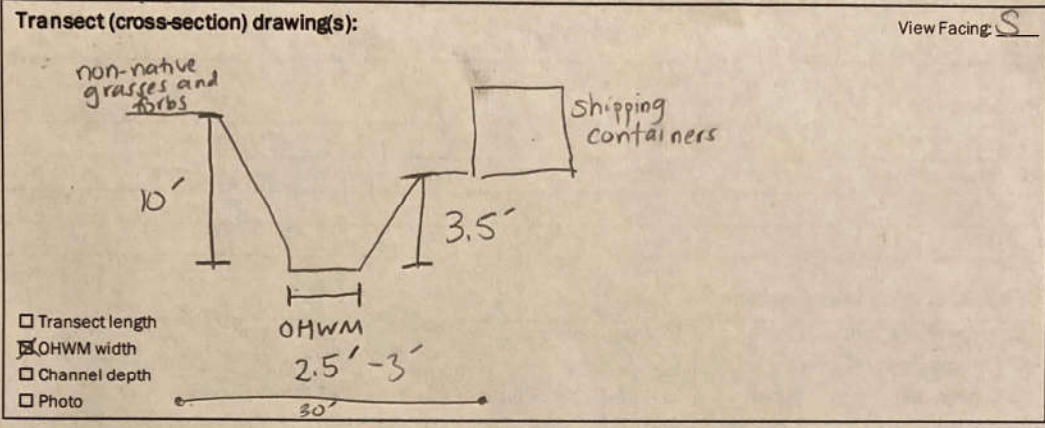 Transect (cross-section) drawing(s):
View Facing: S
non-native
grasses and
forbs
shipping
containers
10'
3.5'
OHWM
2.5' - 3'
30'
☐ Transect length
☒ OHWM width
☐ Channel depth
☐ Photo